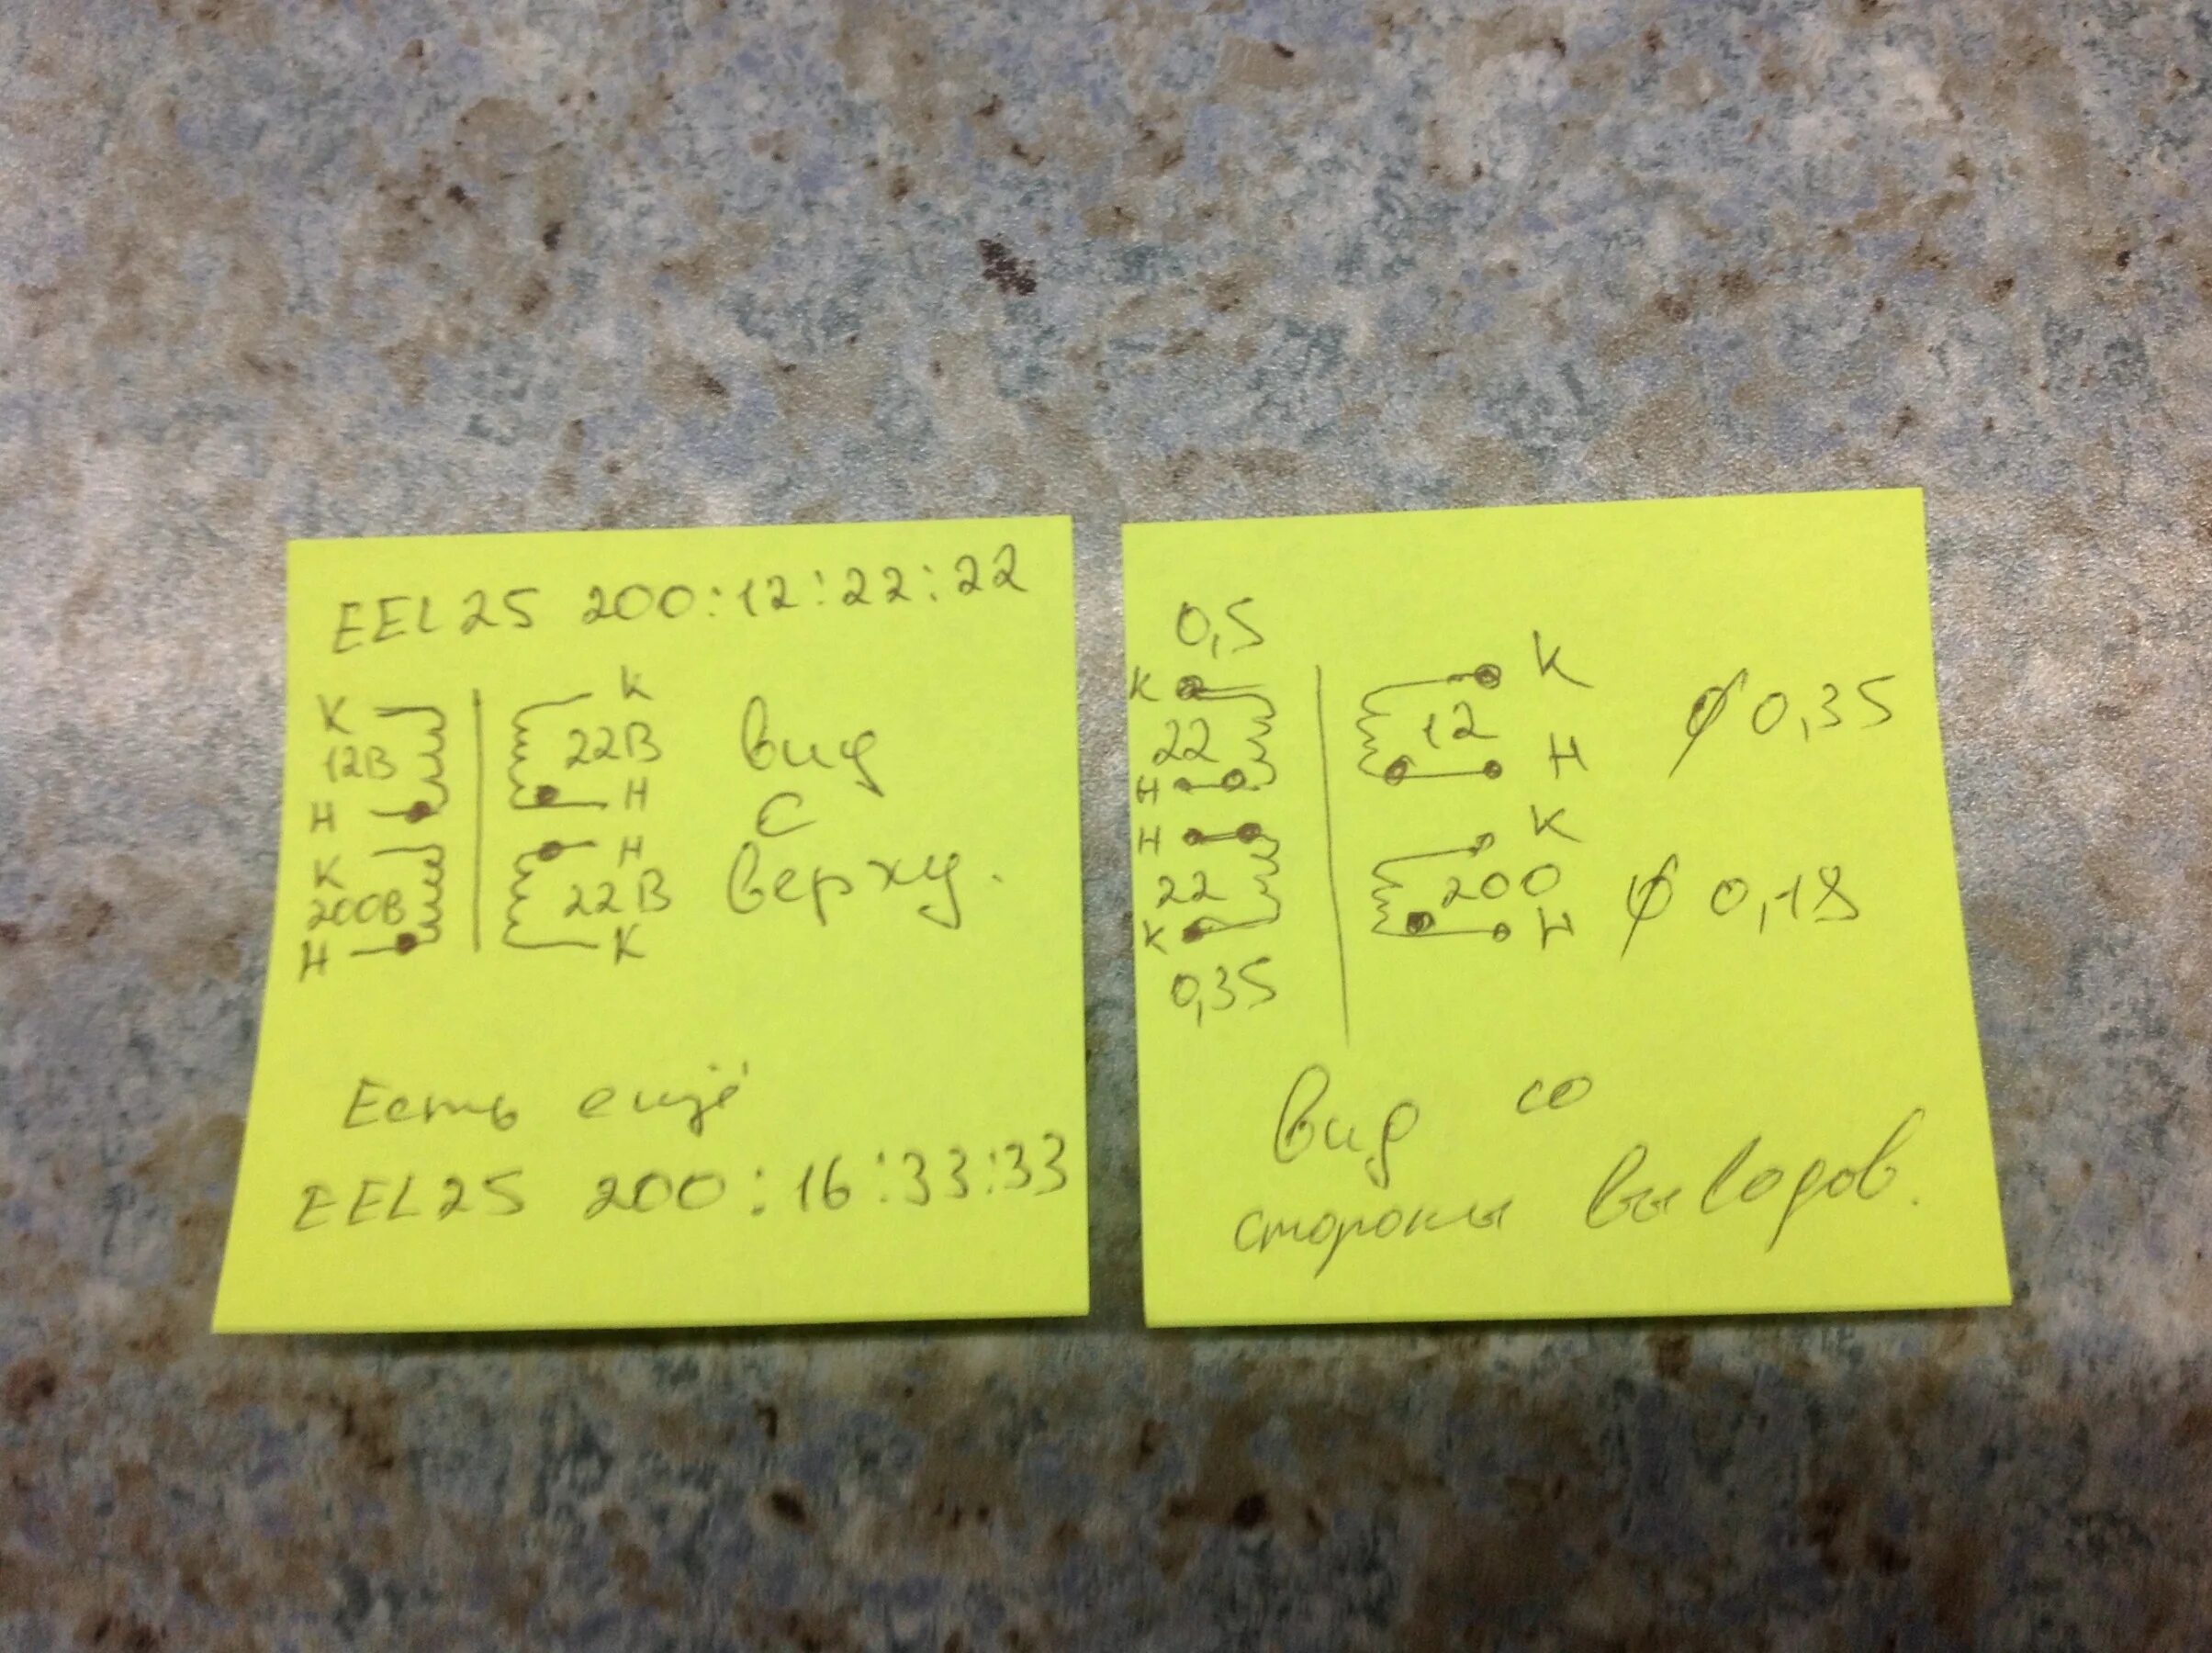 EEL25 200:12:22:22
К К
12В 22В вид
Н Н с
К Н верху.
200В 22В
Н К
Есть ещё
EEL25 200:16:33:33
0,5
К К
22 12 ϕ 0,35
Н Н
Н К
22 200 ϕ 0,18
К Н
0,35
Вид со
стороны выводов.